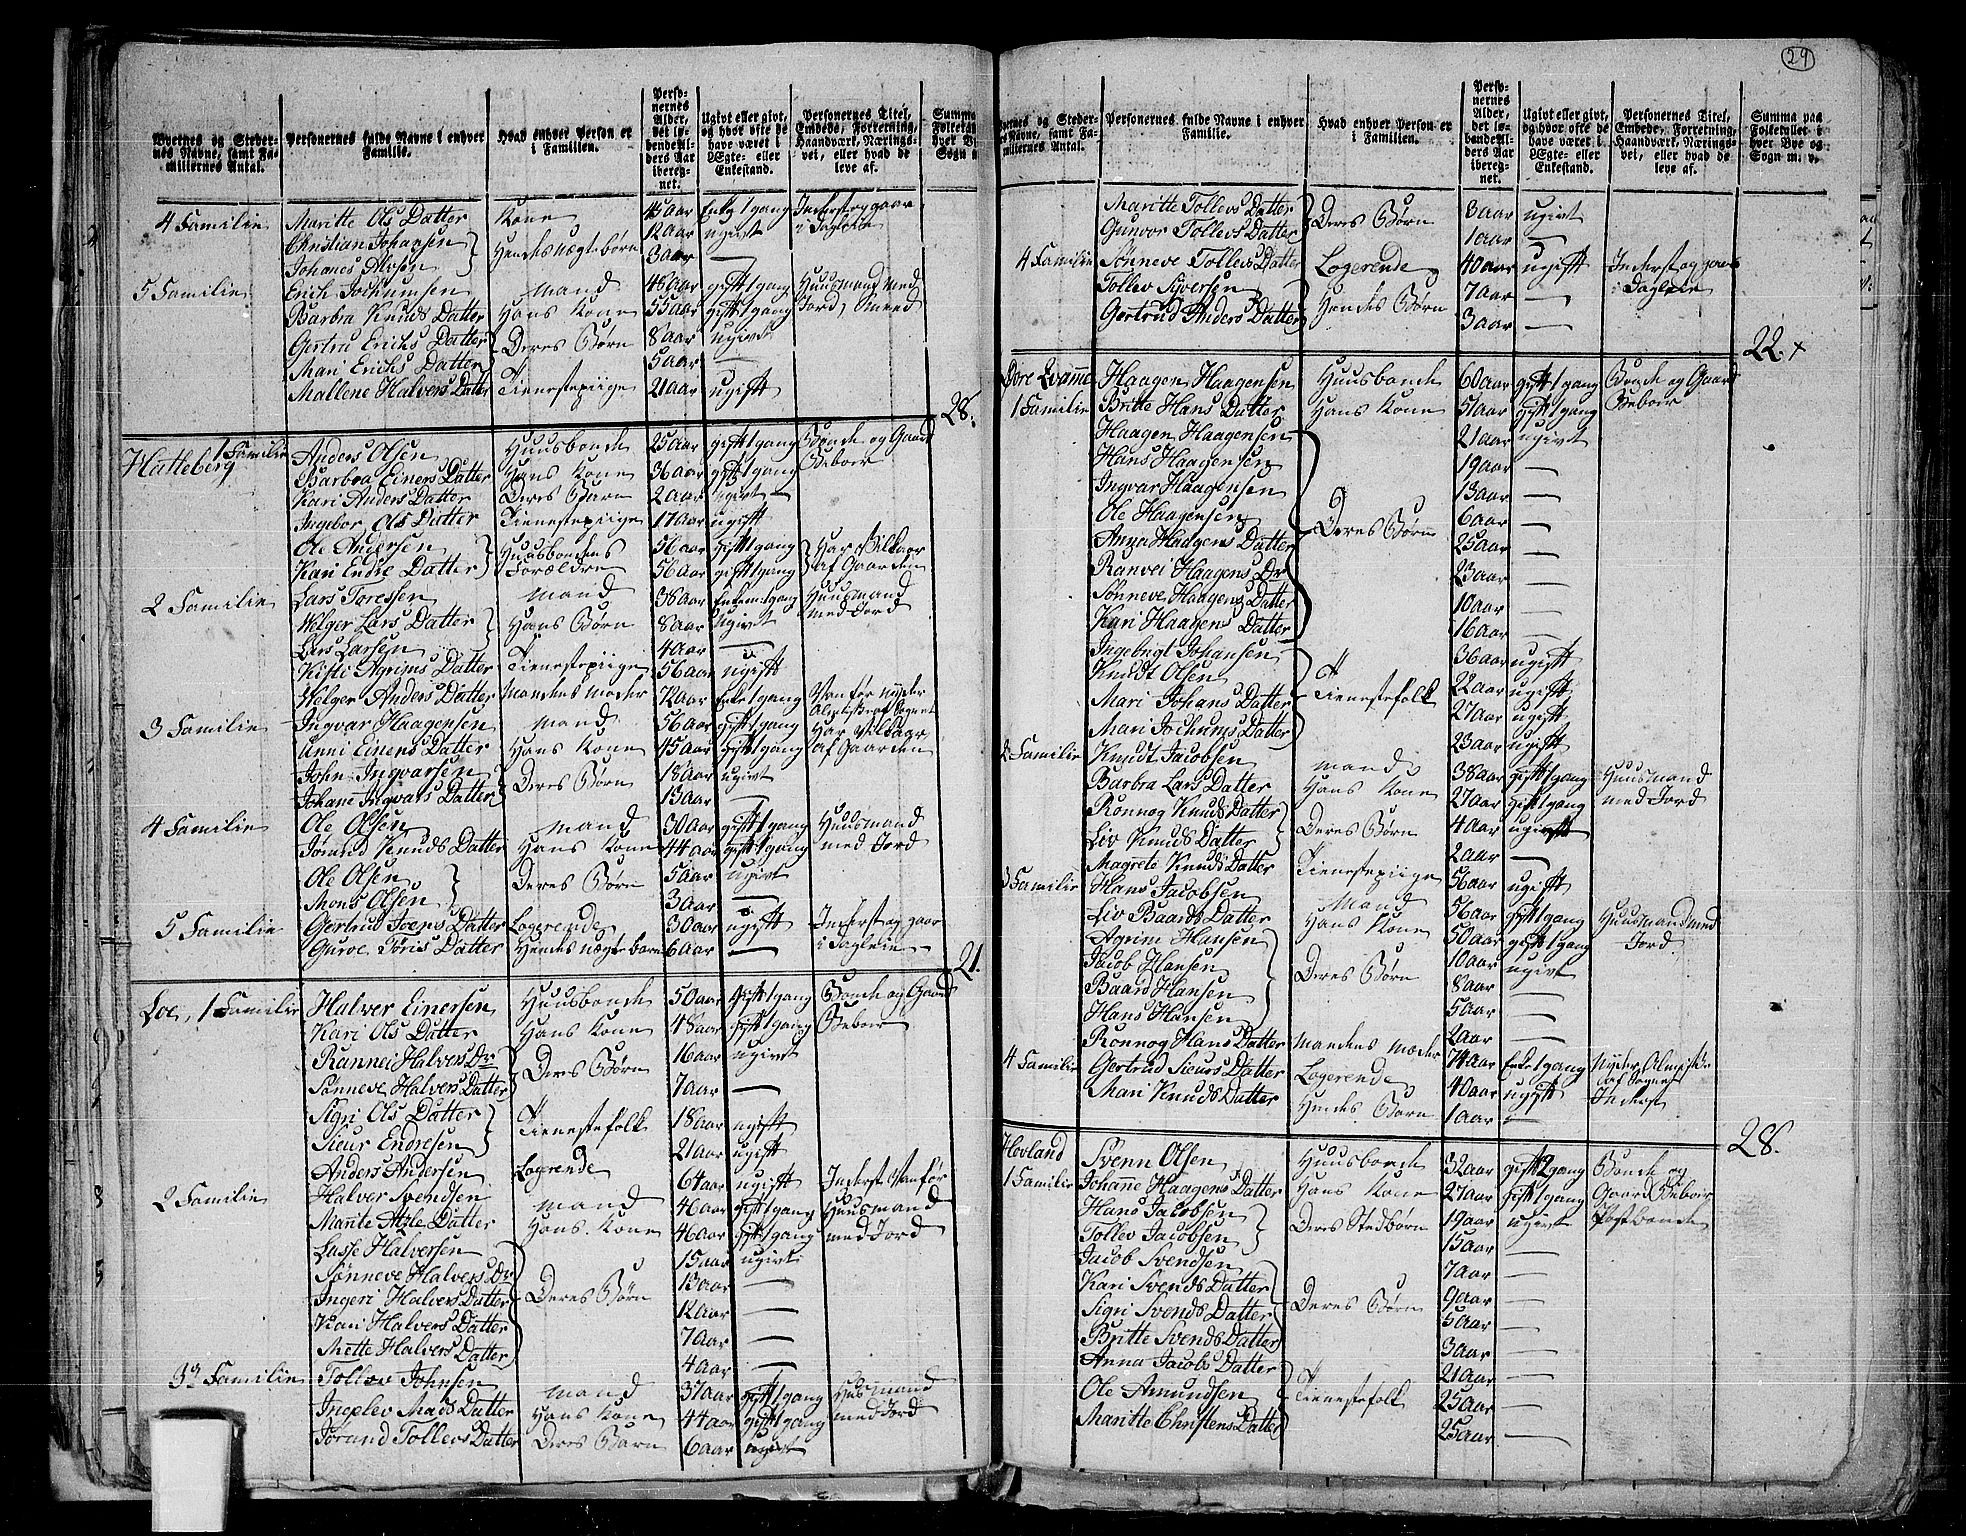 29
Personernes fulde Navne i enhver Familie.
Hvad enhver Person er i Familien.
Personernes Alder, det løbende Alders Aar iberegnet.
Ugivt eller givt, og hvor ofte de have været i Ægte- eller Enkestand.
Personernes Titel, Embede, Forretning, Haandværk, Næringsvei, eller hvad de leve af.
4 Familie Maritte Ols Datter Kone 45 aar Enke 1 gang Inderst og gaar
Christian Johansen 12 aar ugivt i Dagleie
Johanes Hendes Ægtebørn 3 aar —
5 Familie Erich Jochumsen Mand 48 aar gift 1 gang Huusmand med
Barbra Knuds Datter Hans Kone 55 aar gift 1 gang Jord, Smed
Gertru Erichs Datter Deres Børn 8 aar ugivt
Mari Erichs Datter 5 aar —
Mallene Halvers Datter Tienestepiige 21 aar ugift
28.
Hatteberg 1 Familie Anders Olsen Huusbonde 25 aar gift 1 gang Bonde og Gaard
Barbra Einers Datter Hans Kone 36 aar gift 1 gang Beboer
Kari Anders Datter Deres Barn 2 aar ugivt —
Ingebor Ols Datter Tienestepiige 17 aar ugift
Ole Andersen Huusbondens 56 aar gift 1 gang Har Vilkaar
Kari Endre Datter Forældre 56 aar gift 1 gang af Gaarden
2 Familie Lars Toressen Mand 38 aar Enkem: 1 gang Huusmand
Welger Lars Datter Hans Børn 8 aar ugivt med Jord
Lars Larsen 4 aar —
Kisti Agrims Datter Tienestepiige 56 aar ugift
Welger Anders Datter Mandens Moder 72 aar Enke 1 gang Vanfør nyder
3 Familie Ingvar Haagensen Mand 56 aar gift 1 gang Har Vilkaar
Anni Einers Datter Hans Kone 45 aar gift 1 gang af Gaarden
John Ingvarsen Deres Børn 18 aar ugivt
Johane Ingvars Datter 13 aar —
4 Familie Ole Olsen Mand 30 aar gift 1 gang Huusmand
Jørund Knuds Datter Hans Kone 44 aar gift 1 gang med Jord
Ole Olsen Deres Børn 5 aar ugivt
Mons Olsen 3 aar —
5 Familie Gertrud Joens Datter Logerende 30 aar ugift Inderst og gaar
Guroe Joris Datter Hendes Ægte barn 6 aar — i Dagleie
21.
Loe, 1 Familie Halver Einersen Huusbonde 50 aar gift 1 gang Bonde og Gaard
Kari Ols Datter Hans Kone 48 aar gift 1 gang Beboer
Rannei Halvers Dr Deres Børn 16 aar ugivt
Sønneve Halvers Datter 7 aar —
Sigri Ols Datter Tienestefolk 18 aar ugift
Sieur Endresen 21 aar ugift
Anders Andersen Logerende 64 aar ugift Inderst Vanfør
2 Familie Halver Svendsen Mand 46 aar gift 1 gang Huusmand
Maritte Atzle Datter Hans Kone 46 aar gift 1 gang med Jord
Lasse Halversen 15 aar ugivt
Sønneve Halvers Dr 13 aar —
Ingeri Halvers Datter Deres Børn 12 aar —
Kari Halvers Datter 7 aar —
Mette Halvers Datter 4 aar —
3de Familie Tollev Johnsen Mand 37 aar gift 1 gang Huusmand
Ingelev Mads Datter Hans Kone 44 aar gift 1 gang med Jord
Jørund Tollevs Datter Deres Barn 6 aar ugivt
Personernes fulde Navne i enhver Familie.
Hvad enhver Person er i Familien.
Personernes Alder, det løbende Alders Aar iberegnet.
Ugivt eller givt, og hvor ofte de have været i Ægte- eller Enkestand.
Personernes Titel, Embede, Forretning, Haandværk, Næringsvei, eller hvad de leve af.
Summa paa Folketallet i hver Bye og Sogn m. v.
Maritte Tollevs Datter Deres Børn 3 aar ugivt
Gunvor Tollevs Datter 1 aar —
4 Familie Sønneve Tollevs Datter Logerende 40 aar ugift Inderst og gaar
Tollev Siversen Hendes Børn 7 aar — i Dagleie
Gertrud Anders Datter 3 aar —
22.
Øvre Qvamme Haagen Haagensen Huusbonde 60 aar gift 1 gang Bonde og Gaard
1 Familie Britte Hans Datter Hans Kone 51 aar gift 1 gang Beboer
Haagen Haagensen 21 aar ugivt
Hans Haagensen 19 aar —
Ingvar Haagensen 13 aar —
Ole Haagensen Deres Børn 6 aar —
Anna Haagens Datter 25 aar —
Ranvei Haagens Dr 23 aar —
Sønneve Haagens Datter 10 aar —
Kari Haagens Datter 16 aar —
Ingebrigt Johansen 36 aar ugift
Knudt Olsen Tienestefolk 22 aar ugift
Mari Johans Datter 27 aar ugift
Mari Jochums Datter 23 aar ugift
2 Familie Knudt Jacobsen Mand 38 aar gift 1 gang Huusmand
Barbra Lars Datter Hans Kone 27 aar gift 1 gang med Jord
Ronnog Knuds Datter Deres Børn 4 aar ugivt
Liv Knuds Datter 2 aar —
Magrete Knuds Datter Tienestepiige 56 aar ugift
3 Familie Hans Jacobsen Mand 56 aar gift 1 gang Huusmand med
Liv Baards Datter Hans Kone 50 aar gift 1 gang Jord
Agrim Hansen 10 aar ugivt
Jacob Hansen Deres Børn 8 aar —
Baard Hansen 5 aar —
Hans Hansen 2 aar —
Ronnog Hans Datter Mandens Moder 74 aar Enke 1 gang Nyder Almisse
4 Familie Gertrud Sieurs Datter Logerende 40 aar ugift Inderst
Mari Knuds Datter Hendes Barn 1 aar —
28.
Hovland Svenn Olsen Huusbonde 32 aar gift 2 gang Bonde og
1 Familie Johanne Haagens Datter Hans Kone 27 aar gift 1 gang Gaard Beboer
Hans Jacobsen Deres Stedbørn 19 aar ugivt Postbonde
Tollev Jacobsen 15 aar —
Jacob Svendsen 7 aar —
Kari Svends Datter Deres Børn 9 aar —
Sigri Svends Datter 5 aar —
Britte Svends Datter 3 aar —
Anna Jacobs Datter 21 aar —
Ole Amundsen Tienestefolk 25 aar —
Maritte Christens Datter 25 aar —